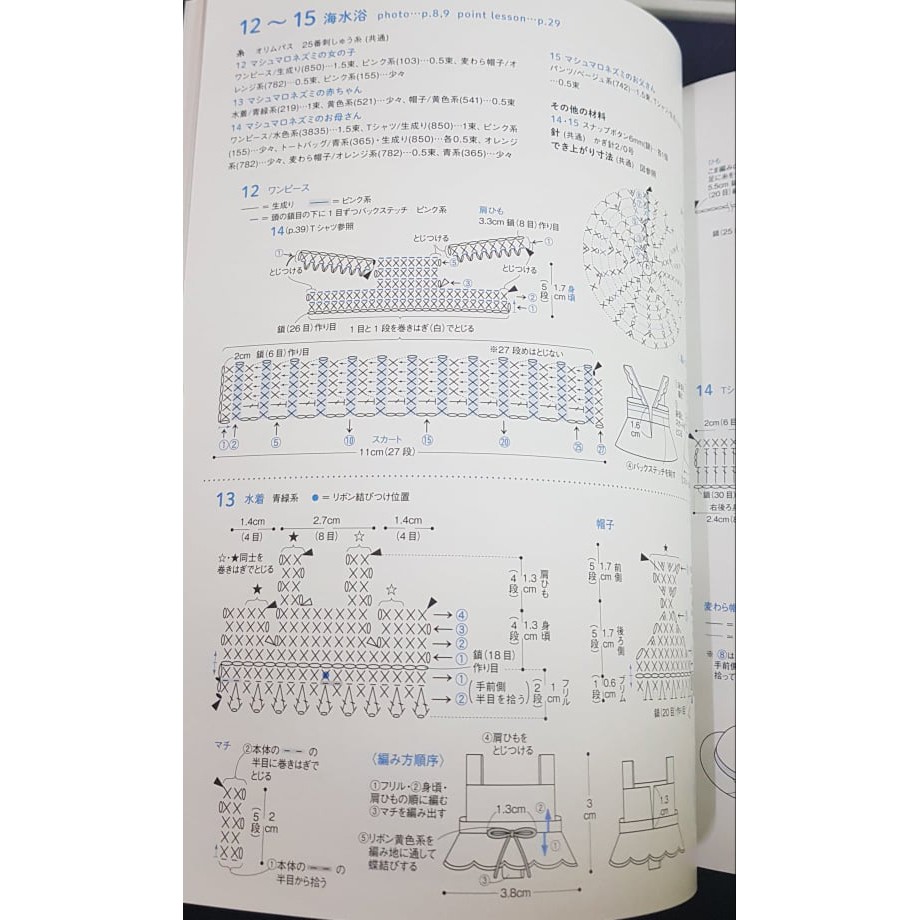 12～15 海水浴 photo…p.8,9 point lesson…p.29
糸 オリムパス 25番刺しゅう糸(共通)
12 マシュマロネズミの女の子
ワンピース/生成り(850)…1.5束、ピンク系(103)…0.5束、麦わら帽子/オ
レンジ系(782)…0.5束、ピンク系(155)…少々
13 マシュマロネズミの赤ちゃん
水着/青緑系(219)…1束、黄色系(521)…少々、帽子/黄色系(541)…0.5束
14 マシュマロネズミのお母さん
ワンピース/水色系(3835)…1.5束、Tシャツ/生成り(850)…1束、ピンク系
(155)…少々、トートバッグ/青系(365)・生成り(850)…各0.5束、オレンジ
系(782)…少々、麦わら帽子/オレンジ系(782)…0.5束、青系(365)…少々
15 マシュマロネズミのお父さん
パンツ/ベージュ系(742)…1.5束、Tシャツ
…0.5束
その他の材料
14・15 スナップボタン6mm(銀)…各1個
針(共通) かぎ針2/0号
でき上がり寸法(共通) 図参照
12 ワンピース
＝生成り ＝ピンク系
＝頭の鎖目の下に1目ずつバックステッチ ピンク系
14(p.39)Tシャツ参照
肩ひも
3.3cm 鎖(8目)作り目
とじつける
とじつける
とじつける
①
①
⑤
③
②
①
5段
1.7cm
身頃
鎖(26目)作り目
1目と1段を巻きはぎ(白)でとじる
2cm 鎖(6目)作り目
※27段めはとじない
① ② ⑤ ⑩ ⑮ ⑳ ㉕ ㉗
スカート
11cm(27段)
1.6cm
④バックステッチを刺す
13 水着 青緑系 ●＝リボン結びつけ位置
1.4cm 2.7cm 1.4cm
(4目) ★ (8目) ☆ (4目)
☆・★同士を
巻きはぎでとじる
★ ☆
④
③
②
①
①
②
鎖(18目)
作り目
(手前側
半目を拾う)
(4段) 1.3cm 肩ひも
(4段) 1.3cm 身頃
(2段) 1cm フリル
帽子
★
(5段) 1.7cm 前側
(5段) 1.7cm 後ろ側
(1段) 0.6cm ブリム
鎖(20目)作り目
マチ
②本体の の
半目に巻きはぎで
とじる
(5段) 2cm
①本体の の
半目から拾う
〈編み方順序〉
①フリル・②身頃・
肩ひもの順に編む
③マチを編み出す
④肩ひもを
とじつける
⑤リボン黄色系を
編み地に通して
蝶結びする
1.3cm
②
①
③
3cm
3.8cm
1.3cm
ひも
こま編み
足に糸を
5.5cm 鎖
(20目)編
鎖(25
14 Tシ
2cm(6目
鎖(30目)
右後ろ身
2.4cm(
麦わら帽
※ ⑧は
手前側
拾って